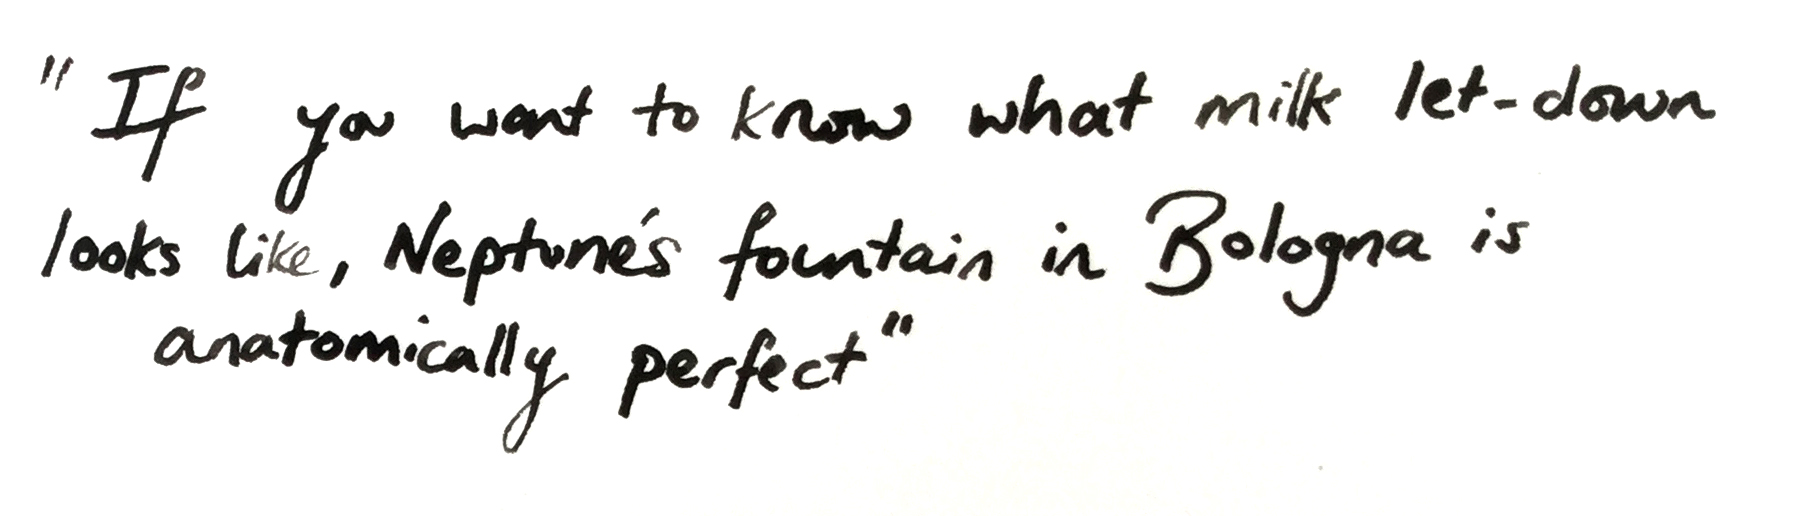 "If you want to know what milk let-down
looks like, Neptune's fountain in Bologna is
anatomically perfect"